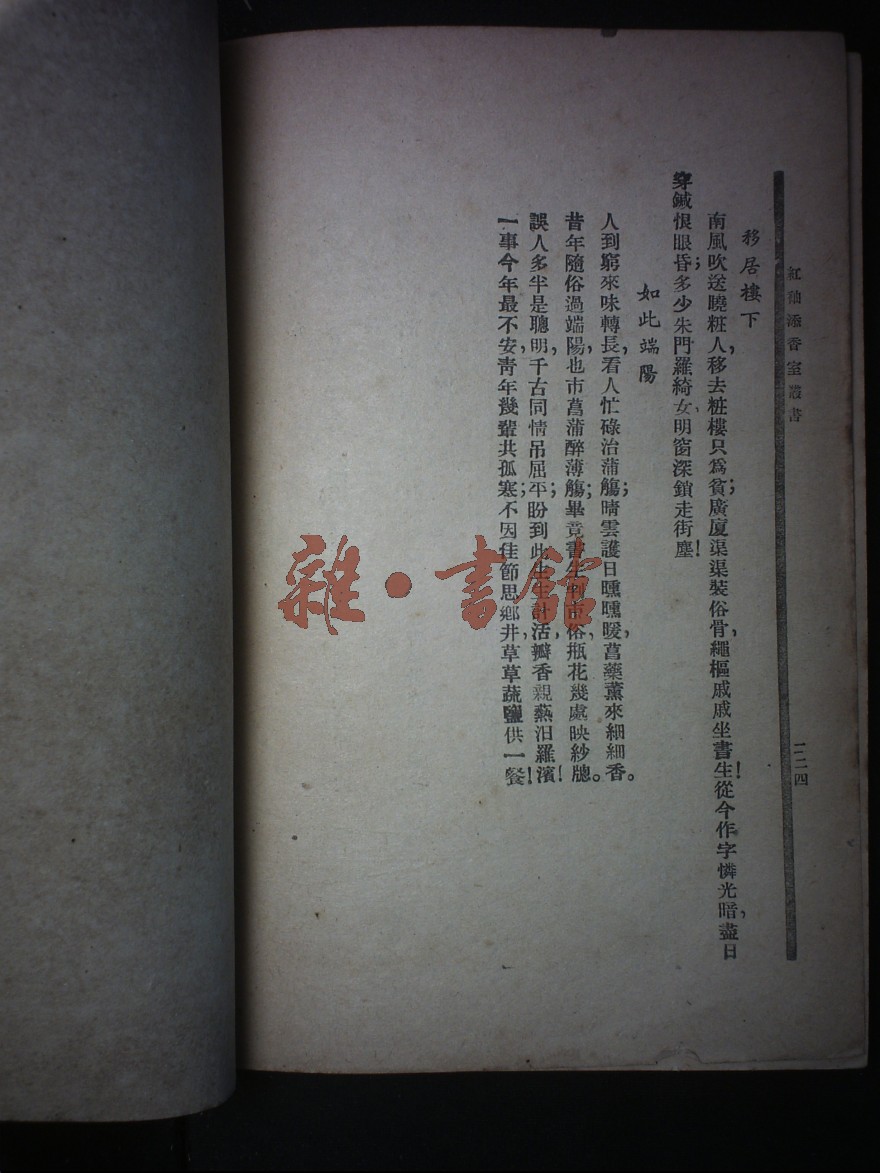 紅袖添香室叢書
二二四
移居樓下
南風吹送曉粧人，移去粧樓只爲貧；廣厦渠渠裝俗骨，繩樞戚戚坐書生！從今作字憐光暗，盡日
穿鍼恨眼昏；多少朱門羅綺女，明窗深鎖走街塵！
如此端陽
人到窮來味轉長，看人忙碌治蒲觴；晴雲護日曛曛暖，菖藥薰來細細香。
昔年隨俗過端陽，也市菖蒲醉薄觴；畢竟書生判市俗，瓶花幾處映紗牕。
誤人多半是聰明，千古同情吊屈平；盼到此生生計活，瓣香親爇汨羅濱！
一事今年最不安，靑年幾輩共孤寒；不因佳節思鄉井，草草蔬鹽供一餐！
雜·書館